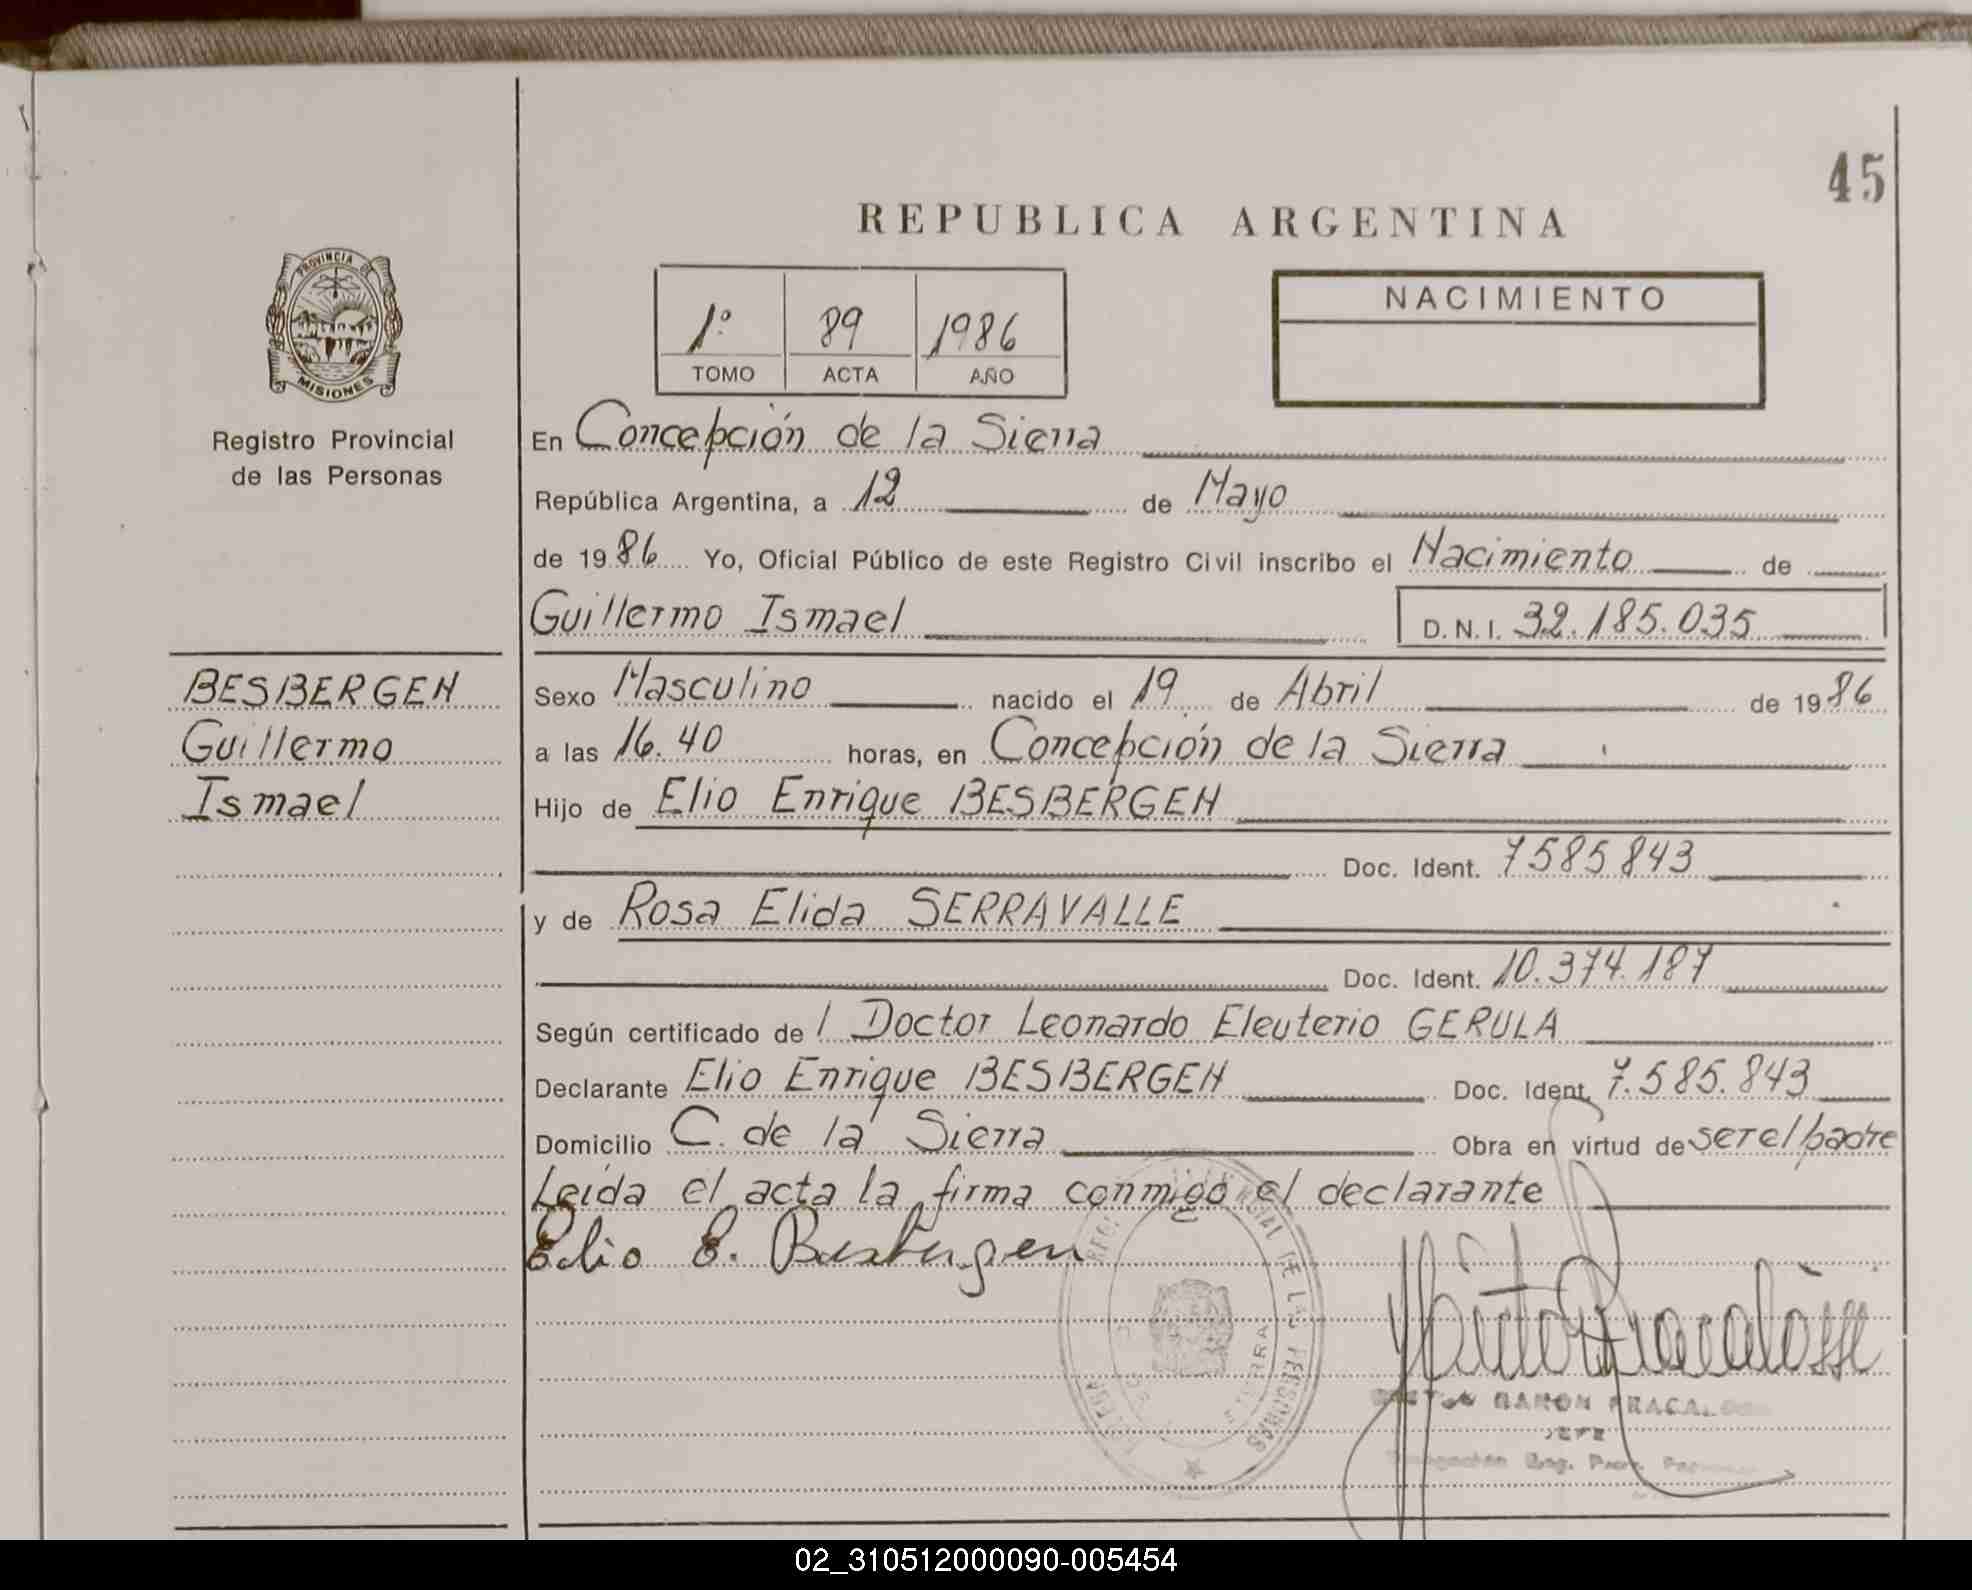 45
REPUBLICA ARGENTINA
PROVINCIA DE
MISIONES
Registro Provincial
de las Personas
1º 89 1986
TOMO ACTA AÑO
NACIMIENTO
En Concepción de la Sierra
República Argentina, a 12 de Mayo
de 1986 Yo, Oficial Público de este Registro Civil inscribo el Nacimiento de
Guillermo Ismael D.N.I. 32.185.035
BESBERGEN
Guillermo
Ismael
Sexo Masculino nacido el 19 de Abril de 1986
a las 16.40 horas, en Concepción de la Sierra
Hijo de Elio Enrique BESBERGEN
Doc. Ident. 7585843
y de Rosa Elida SERRAVALLE
Doc. Ident. 10.374.187
Según certificado de l Doctor Leonardo Eleuterio GERULA
Declarante Elio Enrique BESBERGEN Doc. Ident. 7.585.843
Domicilio C. de la Sierra Obra en virtud de ser el padre
Leída el acta la firma conmigo el declarante
Elio E. Besbergen
DE LAS PERSONAS
SIERRA
RAMON
JEFE
02_310512000090-005454